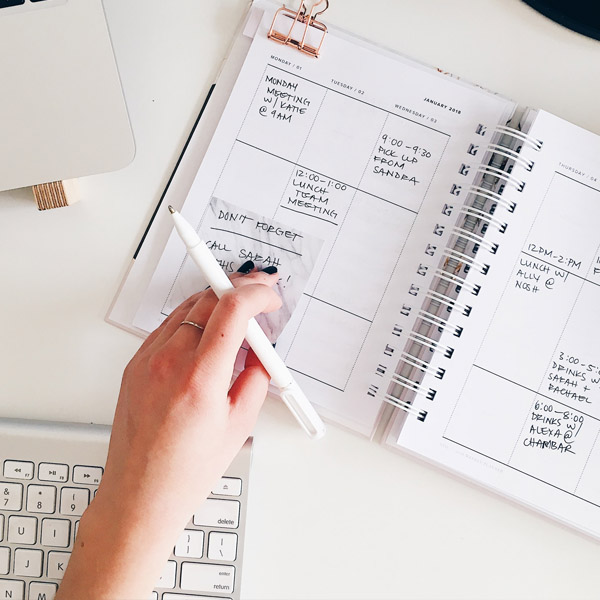 JANUARY 2018
MONDAY / 01
TUESDAY / 02
WEDNESDAY / 03
MONDAY
MEETING
W/ KATIE
@ 9AM
9:00-9:30
PICK UP
FROM
SANDRA
12:00-1:00
LUNCH
TEAM
MEETING
DON'T FORGET
CALL SARAH
THURSDAY / 04
12PM-2PM
LUNCH W/
ALLY @
NOSH
3:00-5:
DRINKS W
SARAH +
RACHAEL
6:00-8:00
DRINKS W/
ALEXA @
CHAMBAR
&
7
*
8
(
9
U
I
J
K
N
M
delete
{ }
[ ]
|
\
enter
return